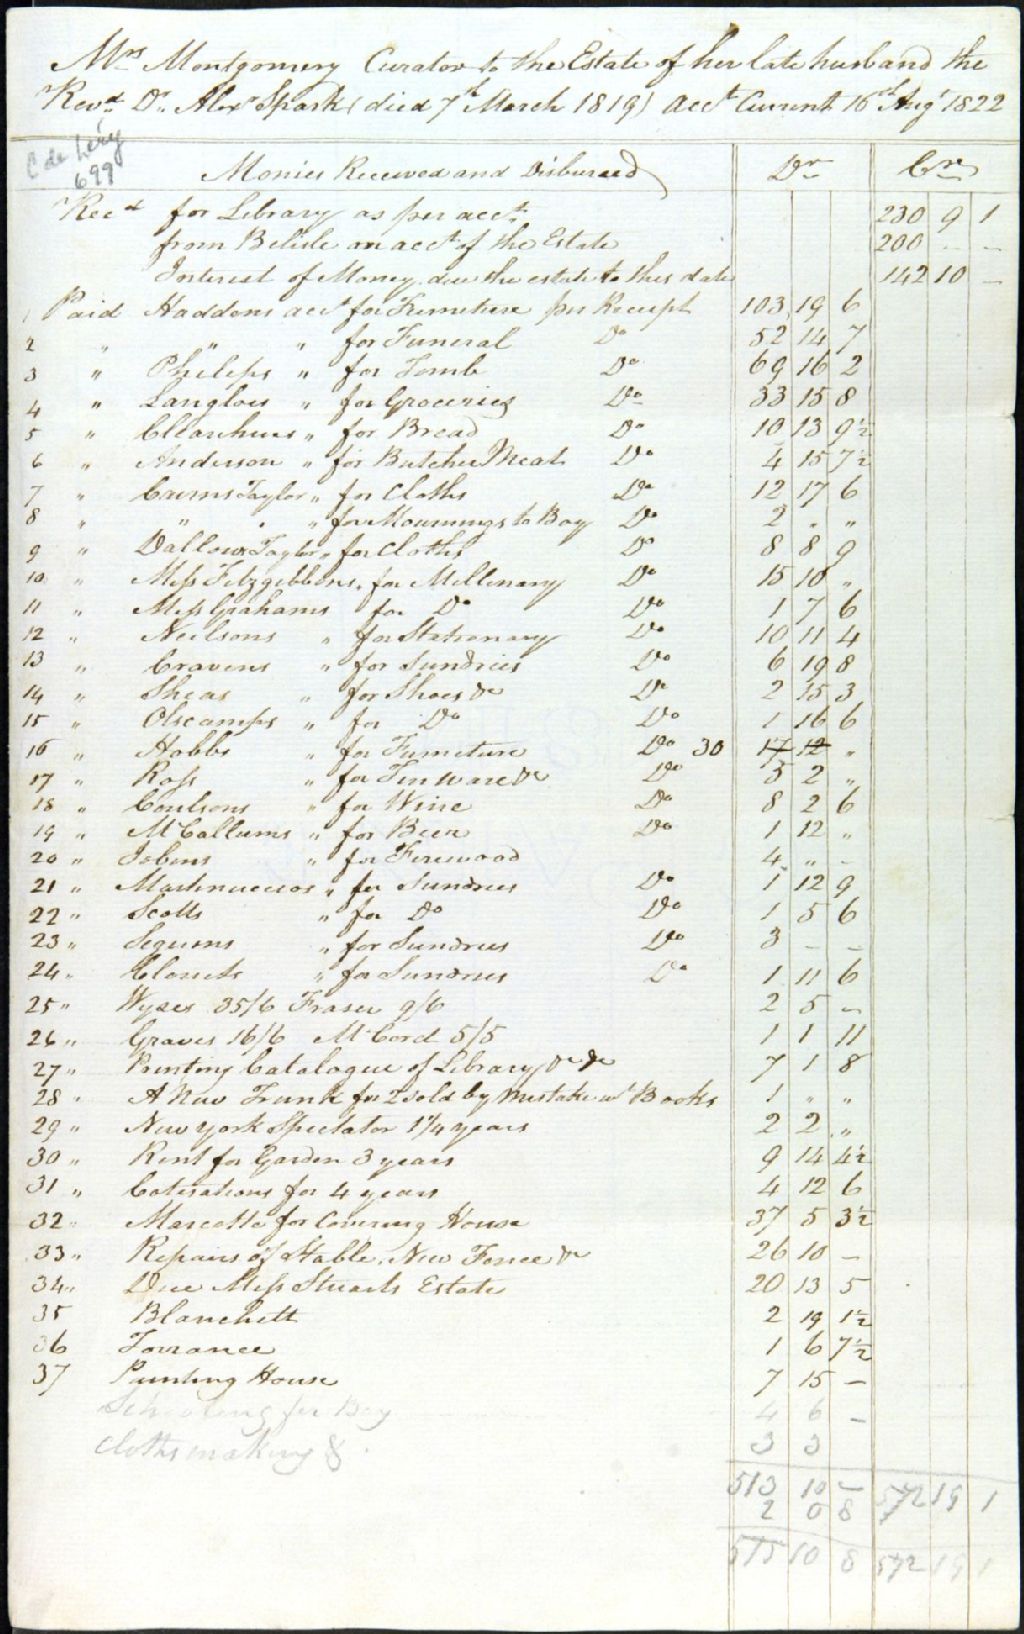 Mrs Montgomery Curator to the Estate of her late husband the
Revd Dr Alexr Spark (died 7th March 1819) acct Current 16th Augt 1822
C de Léry
699
Monies Received and Disbursed Dr Cr
Recd for Library as per acct 230 9 1
from Belile on acct of the Estate 200 - -
Interest of Money due the estate to this date 142 10 -
1 Paid Haddons acct for Furniture per Receipt 103 19 6
2 " " " for Funeral Do 52 14 7
3 " Philips " for Tomb Do 69 16 2
4 " Langlois " for Groceries Do 33 15 8
5 " " for Bread Do 10 13 9½
6 " Anderson " for Butcher Meat Do 4 15 7½
7 " Taylor " for Cloths Do 12 17 6
8 " " " " for Mournings to Boy Do 2 " "
9 " Dallow Taylor " for Cloths Do 8 8 9
10 " Miss Fitzgibbons " for Millenary Do 15 10 "
11 " Miss Grahams for Do Do 1 7 6
12 " Neilsons " for Stationary Do 10 11 4
13 " Cravens " for Sundries Do 6 19 8
14 " Sheas " for Shoes &c Do 2 15 3
15 " Olscamps " for Do Do 1 16 6
16 " Hobbs " for Furniture Do 30 17 12 "
17 " Ross " for Tinware &c Do 5 2 "
18 " Coulsons " for Wine Do 8 2 6
19 " McCallums " for Beer Do 1 12 "
20 " Jobins " for Firewood 4 " -
21 " Martinuccios " for Sundries Do 1 12 9
22 " Scotts " for Do Do 1 5 6
23 " " for Sundries Do 3 - -
24 " Clouets " for Sundries Do 1 11 6
25 " Wyses 35/6 Fraser 9/6 2 5 -
26 " Graves 16/6 McCord 5/5 1 1 11
27 " Printing Catalogue of Library &c &c 7 1 8
28 " A New Trunk for 2 sold by mistake wt Books 1 " "
29 " New York Spectator 1¼ years 2 2 "
30 " Rent for Garden 3 years 9 14 4½
31 " Cotisations for 4 years 4 12 6
32 " Marcotte for Covering House 37 5 3½
33 " Repairs of Stable, New Fence &c 26 10 -
34 " Due Miss Stuarts Estate 20 13 5
35 Blanchett 2 19 1½
36 Torrance 1 6 7½
37 Painting House 7 15 -
Schooling for Boy 4 6 -
Cloths making & 3 3
513 10 - 572 19 1
2 0 8
515 10 8 572 19 1